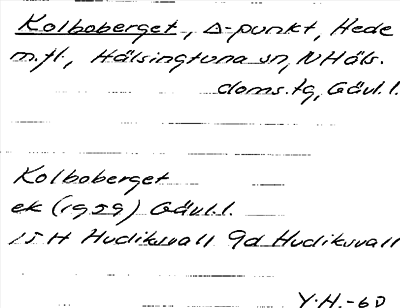 Kolboberget, Δ-punkt, Hede
m.fl., Hälsingtuna sn, N Häls.
doms.tg, Gävl.l.
Kolboberget
ek (1959) Gävl.l.
15H Hudiksvall 9d Hudiksvall
Y.H.-60